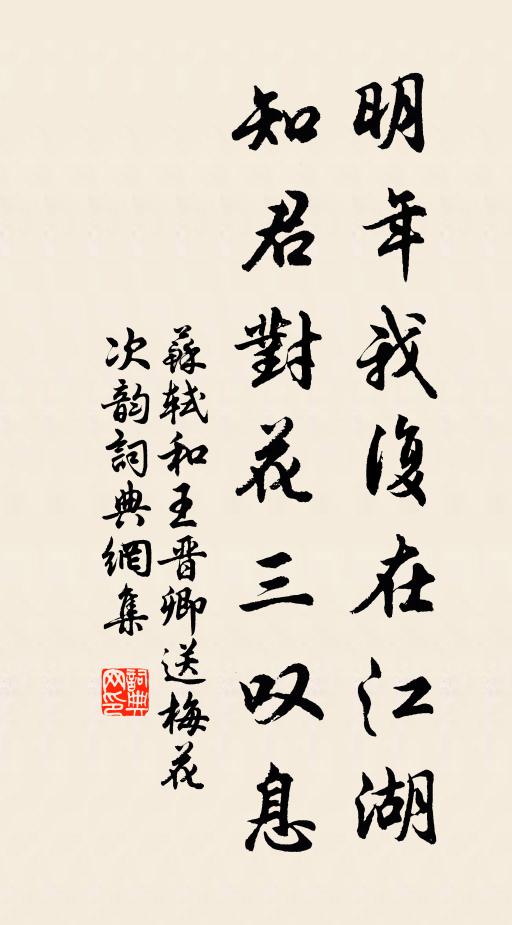 明年我復在江湖
知君對花三叹息
蘇軾和王晋卿送梅花
次韵詞典網集
詞典网印